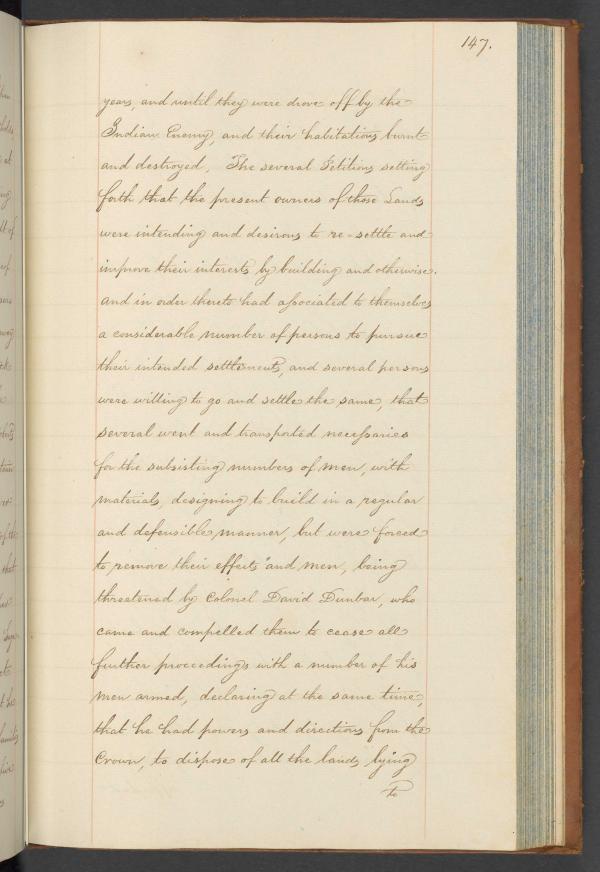 147.
years, and until they were drove off by the
Indian Enemy, and their habitations burnt
and destroyed. The several Petitions setting
forth that the present owners of those Lands
were intending and desirous to re-settle and
improve their interests by building and otherwise.
and in order thereto had associated to themselves
a considerable number of persons to pursue
their intended settlements, and several persons
were willing to go and settle the same, that
several went and transported necessaries
for the subsisting numbers of men, with
materials, designing to build in a regular
and defensible manner, but were forced
to remove their effects and men, being
threatened by Colonel David Dunbar, who
came and compelled them to cease all
further proceedings with a number of his
men armed, declaring at the same time,
that he had powers and directions from the
Crown, to dispose of all the lands lying
to